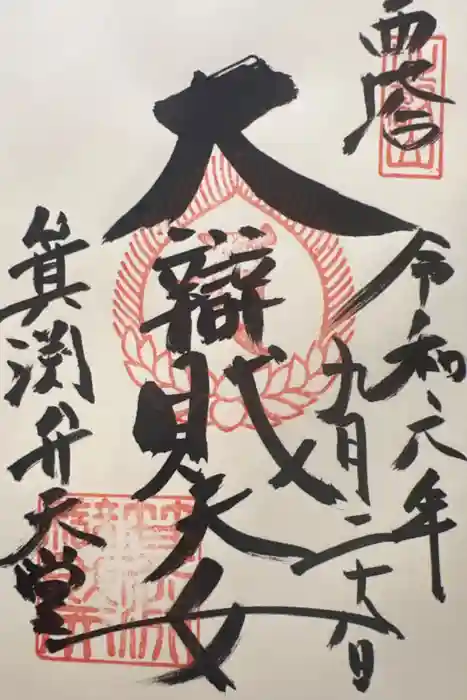 西塔
令和六年
九月二十八日
大辯財天女
箕渕弁天堂